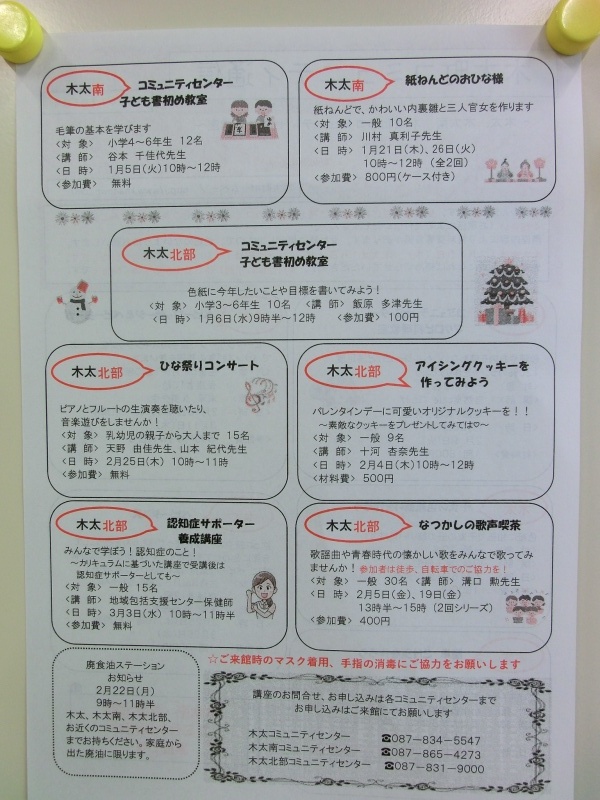 木太南
コミュニティセンター
子ども書初め教室
毛筆の基本を学びます
<対　象>　小学4～6年生　12名
<講　師>　谷本　千佳代先生
<日　時>　1月5日(火)10時～12時
<参加費>　無料
木太南
紙ねんどのおひな様
紙ねんどで、かわいい内裏雛と三人官女を作ります
<対　象>　一般　10名
<講　師>　川村　真利子先生
<日　時>　1月21日(木)、26日(火)
10時～12時　(全2回)
<参加費>　800円(ケース付き)
木太北部
コミュニティセンター
子ども書初め教室
色紙に今年したいことや目標を書いてみよう！
<対　象>　小学3～6年生　10名　<講　師>　飯原　多津先生
<日　時>　1月6日(水)9時半～12時　<参加費>　100円
木太北部
ひな祭りコンサート
ピアノとフルートの生演奏を聴いたり、
音楽遊びをしませんか！
<対　象>　乳幼児の親子から大人まで　15名
<講　師>　天野　由佳先生、山本　紀代先生
<日　時>　2月25日(木)　10時～11時
<参加費>　無料
木太北部
アイシングクッキーを
作ってみよう
バレンタインデーに可愛いオリジナルクッキーを！！
～素敵なクッキーをプレゼントしてみては♡～
<対　象>　一般　9名
<講　師>　十河　杏奈先生
<日　時>　2月4日(木)10時～12時
<材料費>　500円
木太北部
認知症サポーター
養成講座
みんなで学ぼう！認知症のこと！
～カリキュラムに基づいた講座で受講後は
認知症サポーターとしても～
<対　象>　一般　15名
<講　師>　地域包括支援センター保健師
<日　時>　3月3日(水)　10時～11時半
<参加費>　無料
木太北部
なつかしの歌声喫茶
歌謡曲や青春時代の懐かしい歌をみんなで歌ってみ
ませんか！参加者は徒歩、自転車でのご協力を！
<対　象>　一般　30名　<講　師>　溝口　勲先生
<日　時>　2月5日(金)、19日(金)
13時半～15時　(2回シリーズ)
<参加費>　400円
廃食油ステーション
お知らせ
2月22日(月)
9時～11時半
木太、木太南、木太北部、
お近くのコミュニティセンター
までお持ちください。家庭から
出た廃油に限ります。
☆ご来館時のマスク着用、手指の消毒にご協力をお願いします
講座のお問合せ、お申し込みは各コミュニティセンターまで
お申し込みはご来館にてお願いします
木太コミュニティセンター　☎087-834-5547
木太南コミュニティセンター　☎087-865-4273
木太北部コミュニティセンター　☎087-831-9000